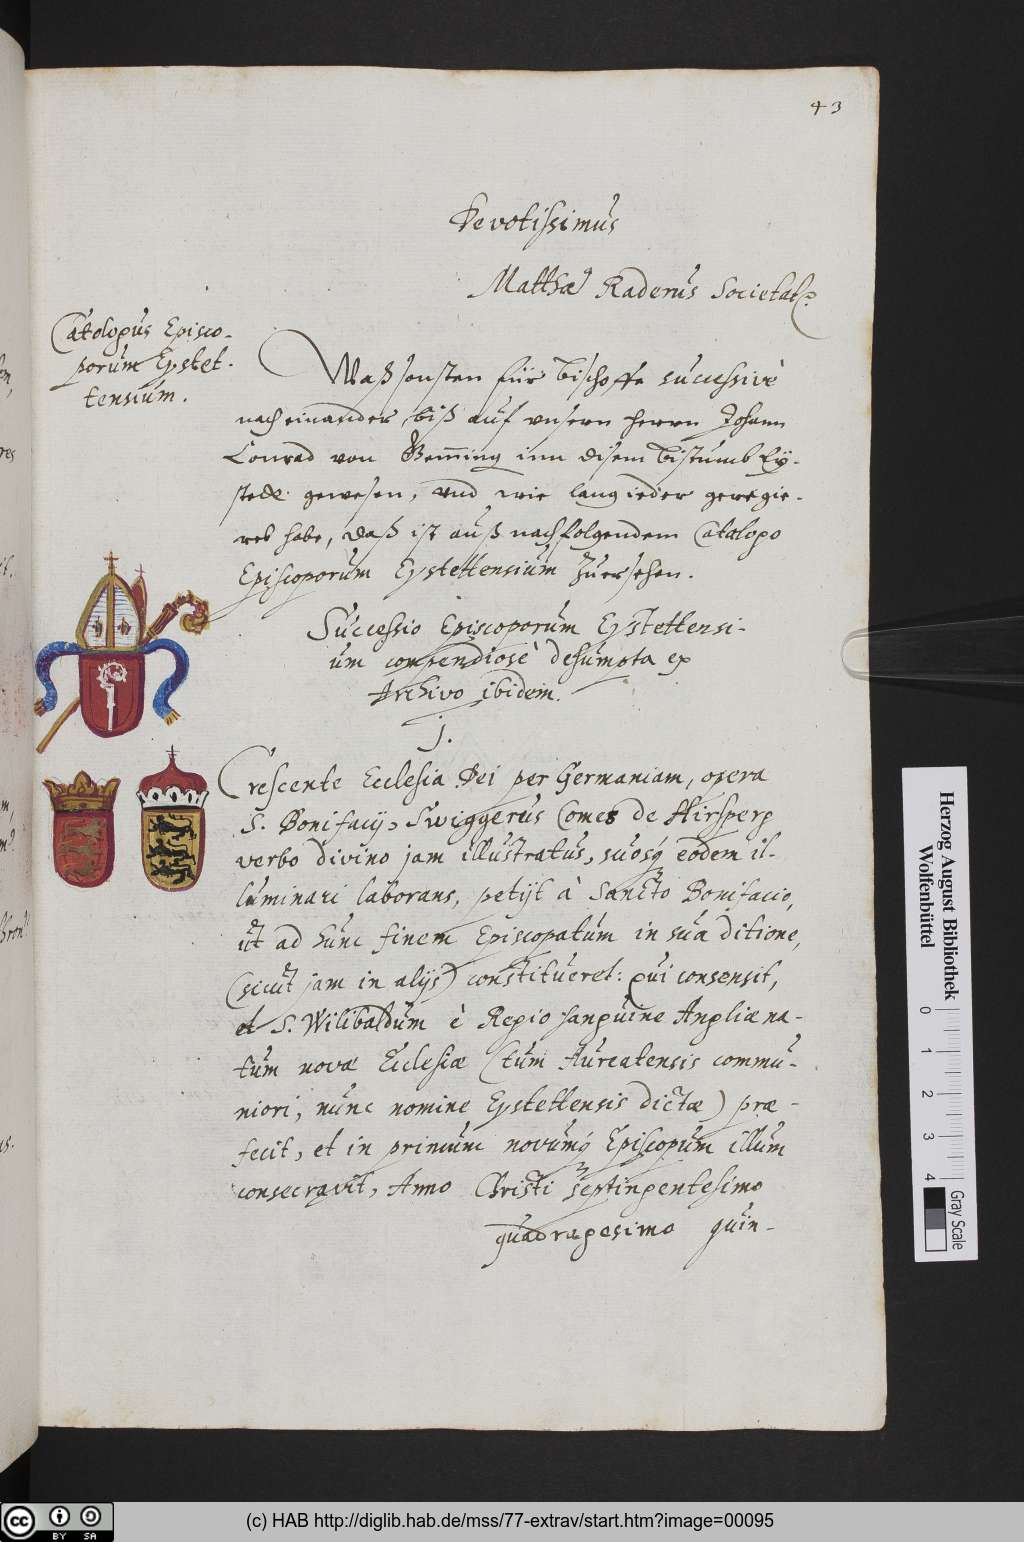 43
Devotissimus
Matthæus Raderus Societat.
Catologus Episco-
porum Eystet-
tensium.
Waß sonsten für Bischoffe successivè
nach einander, biß auf vnsern herrn Johann
Conrad von Gemming inn disem Bistumb Ey-
stedt gewesen, vnd wie lang ieder geregie-
ret habe, daß ist auß nachfolgendem Catologo
Episcoporum Eystettensium zuersehen.
Successio Episcoporum Eystettensi-
um compendiosè desumpta ex
Archivo ibidem.
j.
Crescente Ecclesia Dei per Germaniam, opera
S. Bonifacij, Swiggerus Comes de Hirsperg
verbo divino jam illustratus, suosq eodem il-
luminari laborans, petijt à Sancto Bonifacio,
ut ad hunc finem Episcopatum in suâ ditione,
(sicut jam in alijs) constitueret: qui consensit,
et S. Wilibaldum è Regio sanguine Angliæ na-
tum novæ Ecclesiæ (tum Aureatensis commu-
niori, nunc nomine Eystettensis dictæ) præ-
fecit, et in primum novumq Episcopum illum
consecravit, Anno Christi septingentesimo
quadragesimo quin-
Herzog August Bibliothek
Wolfenbüttel
0 1 2 3 4
Gray Scale
cc BY SA
(c) HAB http://diglib.hab.de/mss/77-extrav/start.htm?image=00095